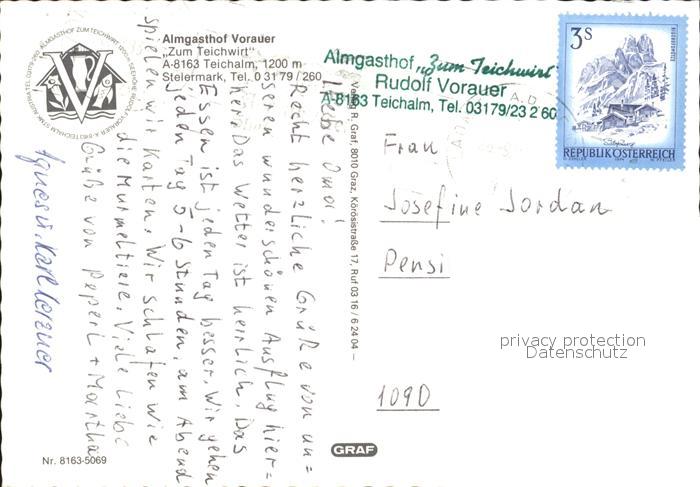 Almgasthof Vorauer
„Zum Teichwirt"
A-8163 Teichalm, 1200 m
Steiermark, Tel. 0 31 79 / 260
Almgasthof „Zum Teichwirt"
Rudolf Vorauer
A-8163 Teichalm, Tel. 03179/23 2 60
3S
REPUBLIK ÖSTERREICH
Liebe Omai!
Recht herzliche Grüße von un=
seren wunderschönen Ausflug hier=
her. Das Wetter ist herrlich. Das
Essen ist jeden Tag besser. Wir gehen
jeden Tag 5-6 Stunden, am Abend
spielen wir Karten. Wir schlafen wie
die Murmeltiere. Viele Liebe
Grüße von Peperl + Martha
Agnes u. Karl
Verlag R. Graf, 8010 Graz, Körösistraße 17, Ruf 03 16 / 6 24 04 –
Frau
Josefine Jordan
Pensi
1090
privacy protection
Datenschutz
Nr. 8163-5069
GRAF